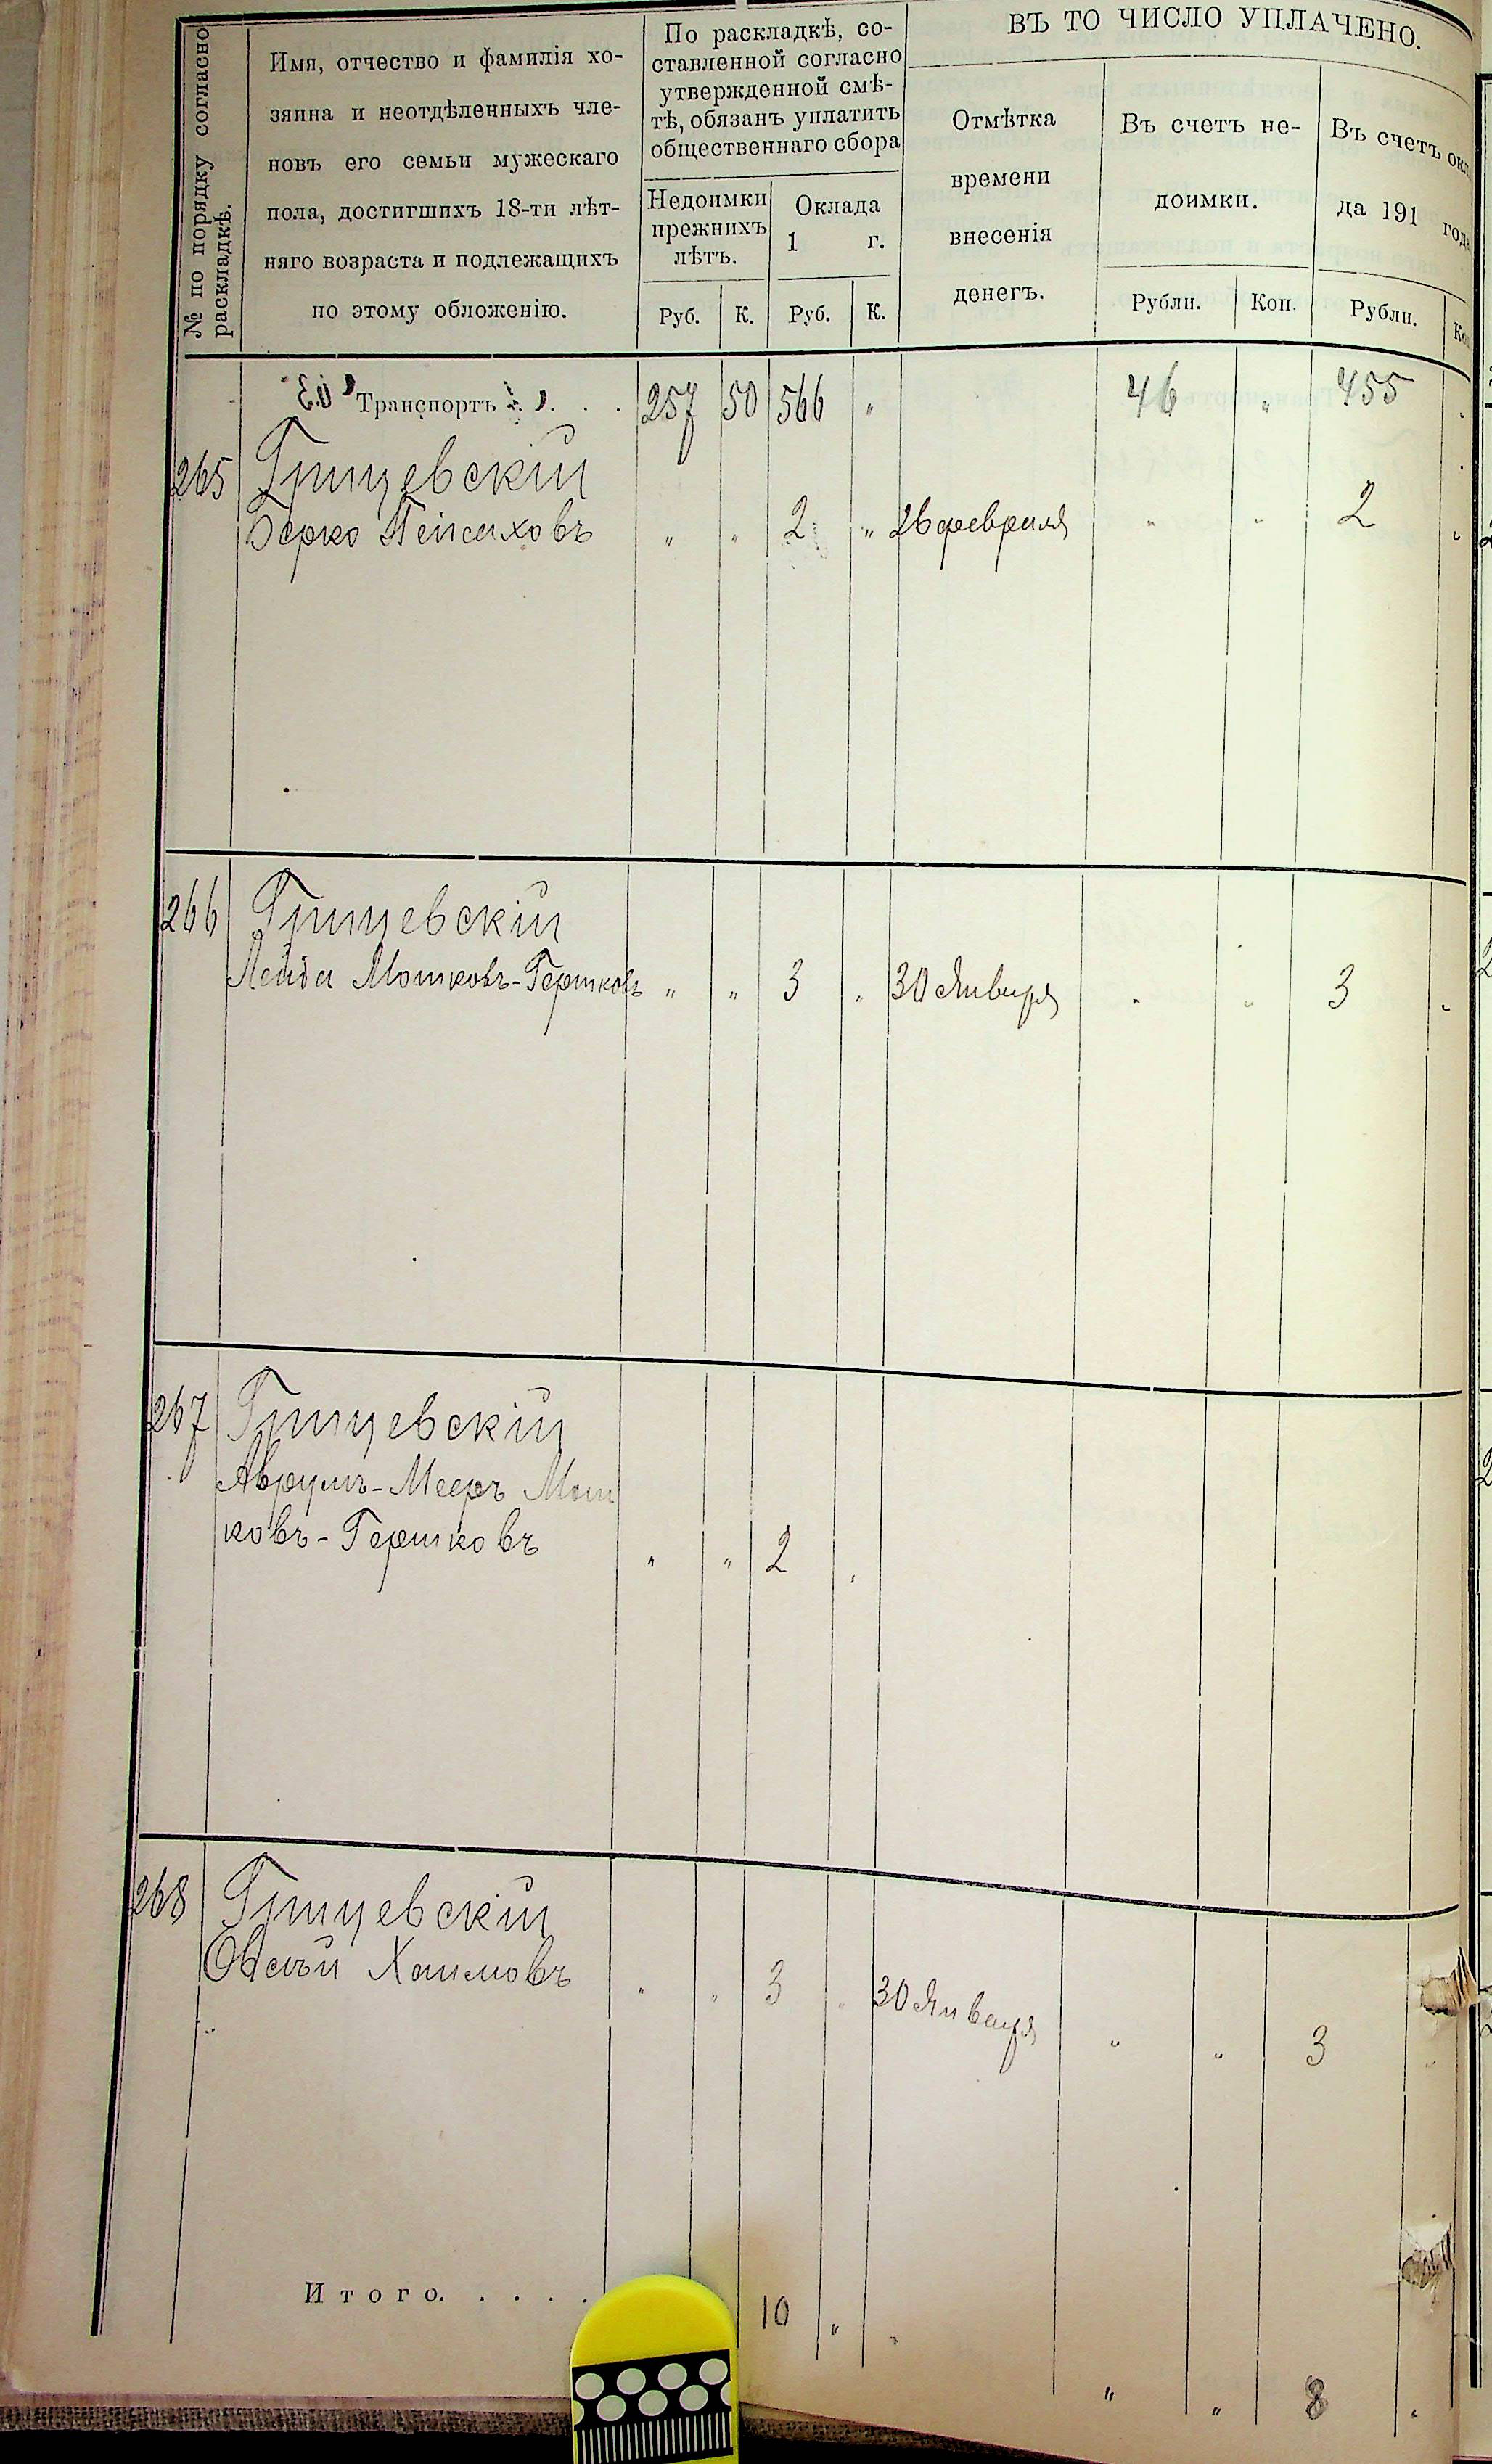 № по порядку согласно
раскладкѣ.
Имя, отчество и фамилія хо-
зяина и неотдѣленныхъ чле-
новъ его семьи мужескаго
пола, достигшихъ 18-ти лѣт-
няго возраста и подлежащихъ
по этому обложенію.
По раскладкѣ, со-
ставленной согласно
утвержденной смѣ-
тѣ, обязанъ уплатить
общественнаго сбора
Недоимки
прежнихъ
лѣтъ.
Оклада
1 г.
Руб. К. Руб. К.
ВЪ ТО ЧИСЛО УПЛАЧЕНО.
Отмѣтка
времени
внесенія
денегъ.
Въ счетъ не-
доимки.
Рубли. Коп.
Въ счетъ окл
да 191 года
Рубли. Ко
Транспортъ . . . 257 50 566 " 46 " 455
265 Грицевскій
Берко Пейсаховъ " " 2 " 26 февраля " " 2 "
266 Грицевскій
Лейба Мошковъ-Гершковъ " " 3 " 30 Января " " 3 "
267 Грицевскій
Аврумъ-Мееръ Мош
ковъ-Гершковъ " " 2 "
268 Грицевскій
Овсѣй Хаимовъ " " 3 " 30 Января " " 3 "
Итого. . . . . 10 " " " 8 "